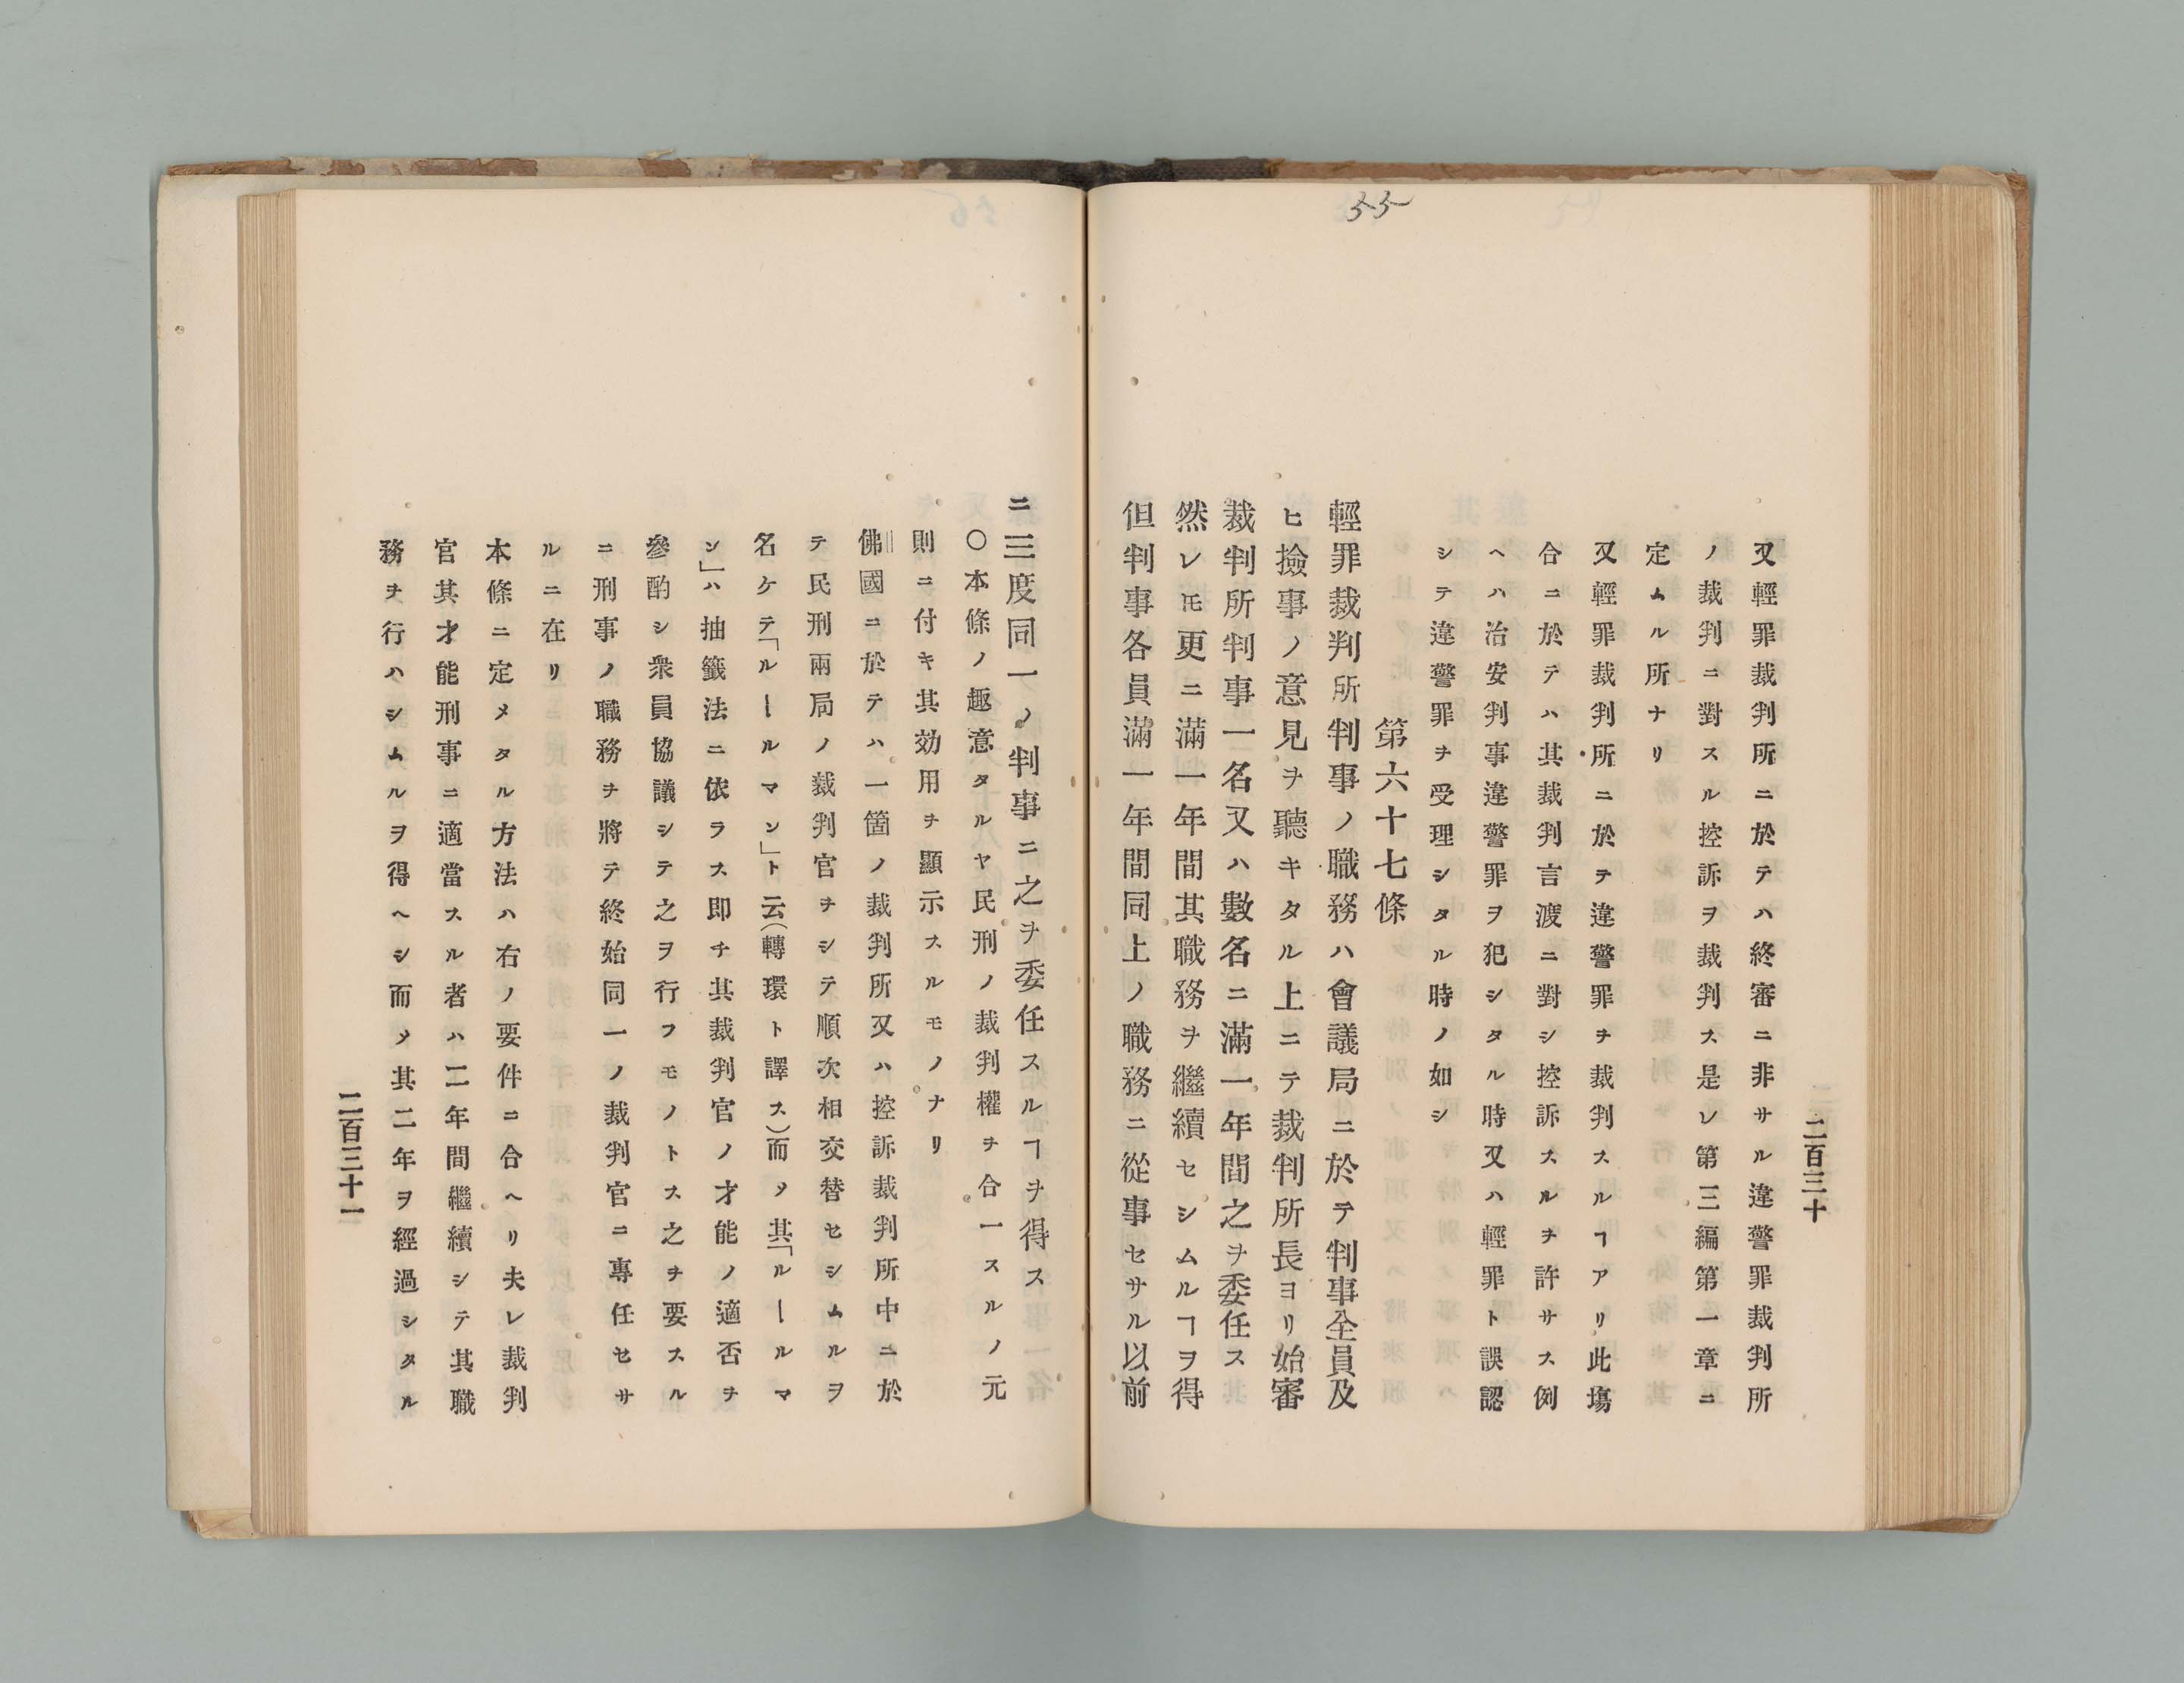 55
二百三十
又輕罪裁判所ニ於テハ終審ニ非サル違警罪裁判所
ノ裁判ニ對スル控訴ヲ裁判ス是レ第三編第一章ニ
定ムル所ナリ
又輕罪裁判所ニ於テ違警罪ヲ裁判スルヿアリ此塲
合ニ於テハ其裁判言渡ニ對シ控訴スルヲ許サス例
ヘハ治安判事違警罪ヲ犯シタル時又ハ輕罪ト誤認
シテ違警罪ヲ受理シタル時ノ如シ
第六十七條
輕罪裁判所判事ノ職務ハ會議局ニ於テ判事全員及
ヒ撿事ノ意見ヲ聽キタル上ニテ裁判所長ヨリ始審
裁判所判事一名又ハ數名ニ滿一年間之ヲ委任ス
然レ𪜈更ニ滿一年間其職務ヲ繼續セシムルヿヲ得
但判事各員滿一年間同上ノ職務ニ從事セサル以前
ニ三度同一ノ判事ニ之ヲ委任スルヿヲ得ス
〇本條ノ趣意タルヤ民刑ノ裁判權ヲ合一スルノ元
則ニ付キ其効用ヲ顯示スルモノナリ
佛國ニ於テハ一箇ノ裁判所又ハ控訴裁判所中ニ於
テ民刑兩局ノ裁判官ヲシテ順次相交替セシムルヲ
名ケテ「ルールマン」ト云(轉環ト譯ス)而ノ其「ルールマ
ン」ハ抽籤法ニ依ラス即チ其裁判官ノ才能ノ適否ヲ
參酌シ衆員協議シテ之ヲ行フモノトス之ヲ要スル
ニ刑事ノ職務ヲ將テ終始同一ノ裁判官ニ專任セサ
ルニ在リ
本條ニ定メタル方法ハ右ノ要件ニ合ヘリ夫レ裁判
官其才能刑事ニ適當スル者ハ二年間繼續シテ其職
務ヲ行ハシムルヲ得ヘシ而ノ其二年ヲ經過シタル
二百三十一